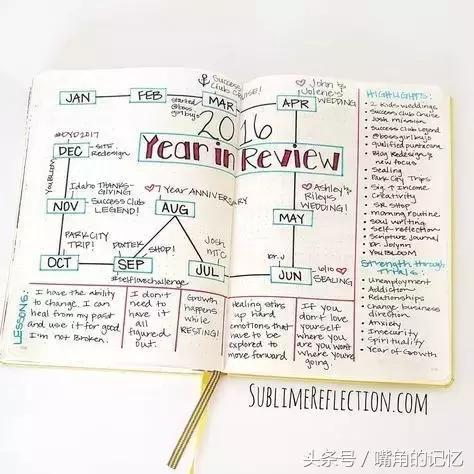 Success
Club CRUISE!
John &
Jolene's
WEDDING
JAN
FEB
MAR
APR
started
@boss
girlbujo
2016
Year in Review
#DYD2017
DEC
SITE
Redesign
YOUBLOOM
Idaho THANKS-
GIVING
NOV
Success Club
LEGEND!
7 Year ANNIVERSARY
AUG
Ashley &
Riley's
WEDDING!
MAY
PARK CITY
TRIP!
SHOP!
Josh
MTC
DR. J
6/10
SEALING
OCT
SEP
JUL
JUN
#selflovechallenge
HIGHLIGHTS:
2 Kids weddings
Success Club Cruise
Josh mission
Success Club Legend
@bossgirlbujo
Qualified puntacana
Blog Redesign &
new focus
Sealing
Park City Trips
Sig. ↑ Income
Creativity
SR shop
morning routine
soul writing
Self-reflection
Scripture Journal
Dr. Jolynn
YouBLOOM
Strength through
TRIALS:
Unemployment
Addiction
Relationships
Change business
direction
Anxiety
Insecurity
Spirituality
Year of Growth
LESSONS:
I have the ability
to change. I can
heal from my past
and use it for good
I'm not broken.
I don't
need to
have it
all
figured
out.
Growth
happens
while
RESTING!
Healing stirs
up hard
emotions that
have to be
explored to
move forward
If you
don't love
yourself
where you
are you won't
where you're
going.
SUBLIMEREFLECTION.COM
头条号 / 嘴角的记忆